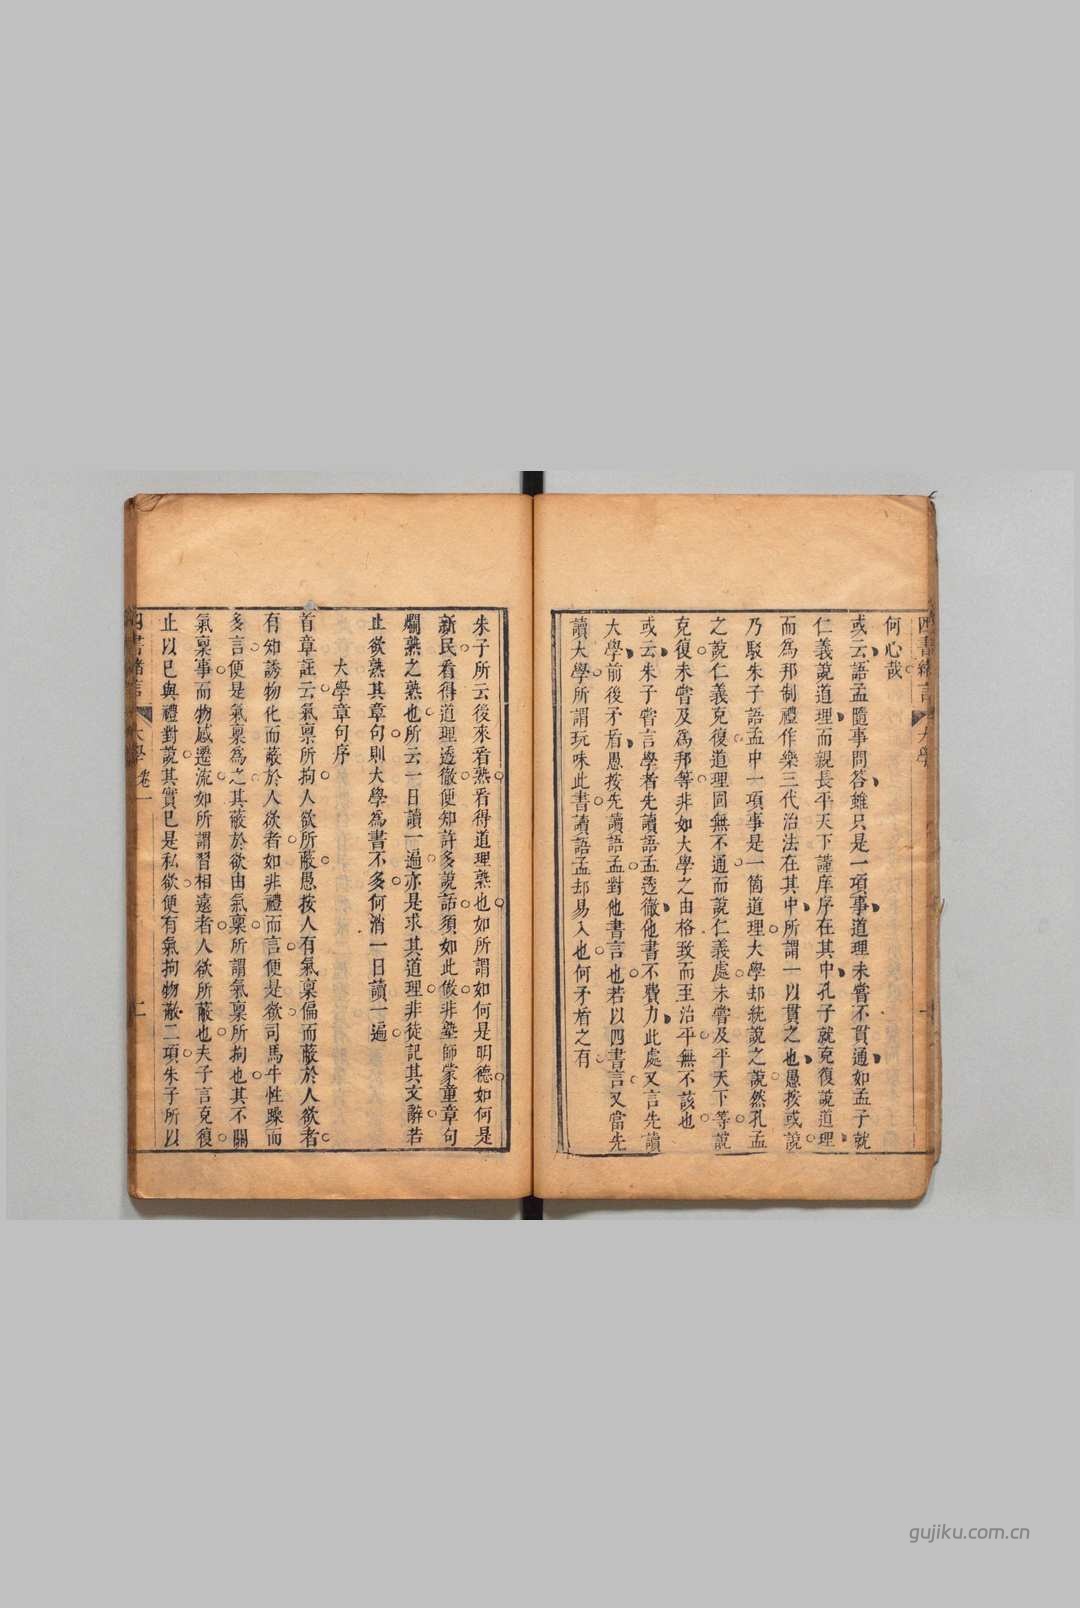 何心哉
或云語孟隨事問答雖只是一項事道理未嘗不貫通如孟子就
仁義說道理而親長平天下謹庠序在其中孔子就克復說道理
而爲邦制禮作樂三代治法在其中所謂一以貫之也愚按或說
乃駁朱子語孟中一項事是一箇道理大學却統說之說然孔孟
之說仁義克復道理固無不通而說仁義處未嘗及平天下等說
克復未嘗及爲邦等非如大學之由格致而至治平無不該也
或云朱子嘗言學者先讀語孟透徹他書不費力此處又言先讀
大學前後矛盾愚按先讀語孟對他書言也若以四書言又當先
讀大學所謂玩味此書讀語孟却易入也何矛盾之有
朱子所云後來看熟看得道理熟也如所謂如何是明德如何是
新民看得道理透徹便知許多說話須如此做非塾師蒙童章句
爛熟之熟也所云一日讀一遍亦是求其道理非徒記其文辭若
止欲熟其章句則大學爲書不多何消一日讀一遍
大學章句序
首章註云氣稟所拘人欲所蔽愚按人有氣稟偏而蔽於人欲者
有知誘物化而蔽於人欲者如非禮而言便是欲司馬牛性躁而
多言便是氣稟爲之其蔽於欲由氣稟所謂氣稟所拘也其不關
氣稟事而物感遷流如所謂習相遠者人欲所蔽也夫子言克復
止以己與禮對說其實己是私欲便有氣拘物蔽二項朱子所以
四書緒言
大學 卷一
二
gujiku.com.cn